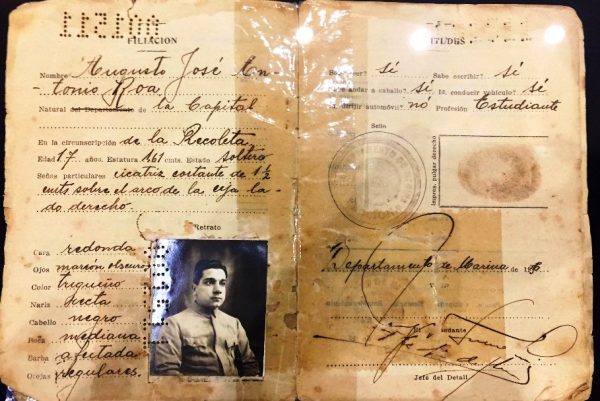 FILIACION
Nombre Augusto José An-
tonio Roa
Natural del Departamento de la Capital
En la circunscripción de la Recoleta
Edad 17 años. Estatura 161 cmts. Estado soltero
Señas particulares cicatriz cortante de 1½
cmts sobre el arco de la ceja la-
do derecho
Retrato
Cara redonda
Ojos marrón obscuro
Color trigueño
Nariz recta
Cabello negro
Boca mediana
Barba afeitada
Orejas regulares
sí Sabe escribir? sí
andar a caballo? sí Id. conducir vehiculo? sí
Id. dirijir automóvil? nó Profesión Estudiante
Sello
Impres. pulgar derecho
Departamento de Marina, de
Jefe del Detall